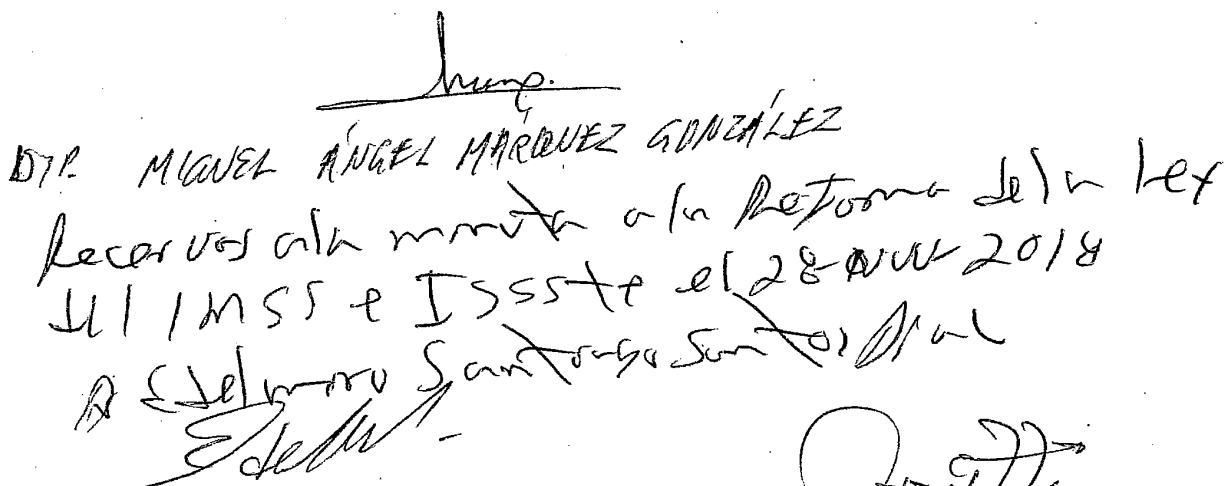 DIP. MIGUEL ÁNGEL MÁRQUEZ GONZÁLEZ
Recervas a la minuta a la Reforma de la Ley
del IMSS e ISSSTE el 28 NOV 2018
Edelmiro Santiago Santos